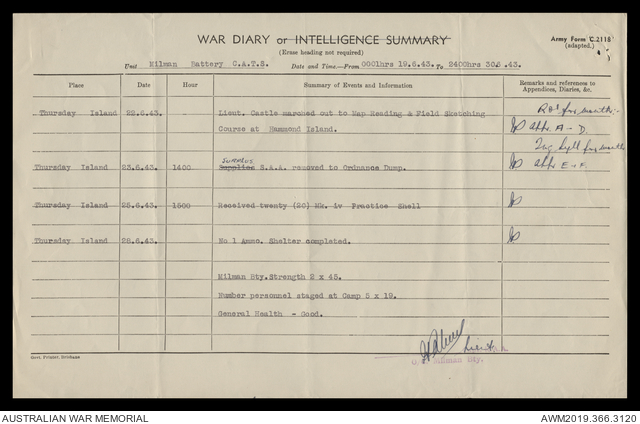 WAR DIARY or INTELLIGENCE SUMMARY
(Erase heading not required)
Army Form C.2118
(adapted.)
Unit Milman Battery C.A.T.S. Date and Time—From 0001hrs 19.6.43. To 2400hrs 30.6.43.
Place Date Hour Summary of Events and Information Remarks and references to Appendices, Diaries, &c.
Thursday Island 22.6.43. - Lieut. Castle marched out to Map Reading & Field Sketching
Course at Hammond Island. App. A - D.
Surplus
Thursday Island 23.6.43. 1400 Supplies S.A.A. removed to Ordnance Dump. App. E - F.
Thursday Island 25.6.43. 1500 Received twenty (20) Mk. iv Practice Shell
Thursday Island 28.6.43. No 1 Ammo. Shelter completed.
Milman Bty. Strength 2 x 45.
Number personnel staged at Camp 5 x 19.
General Health - Good.
Lieut.
Milman Bty.
Govt. Printer, Brisbane
AUSTRALIAN WAR MEMORIAL AWM2019.366.3120